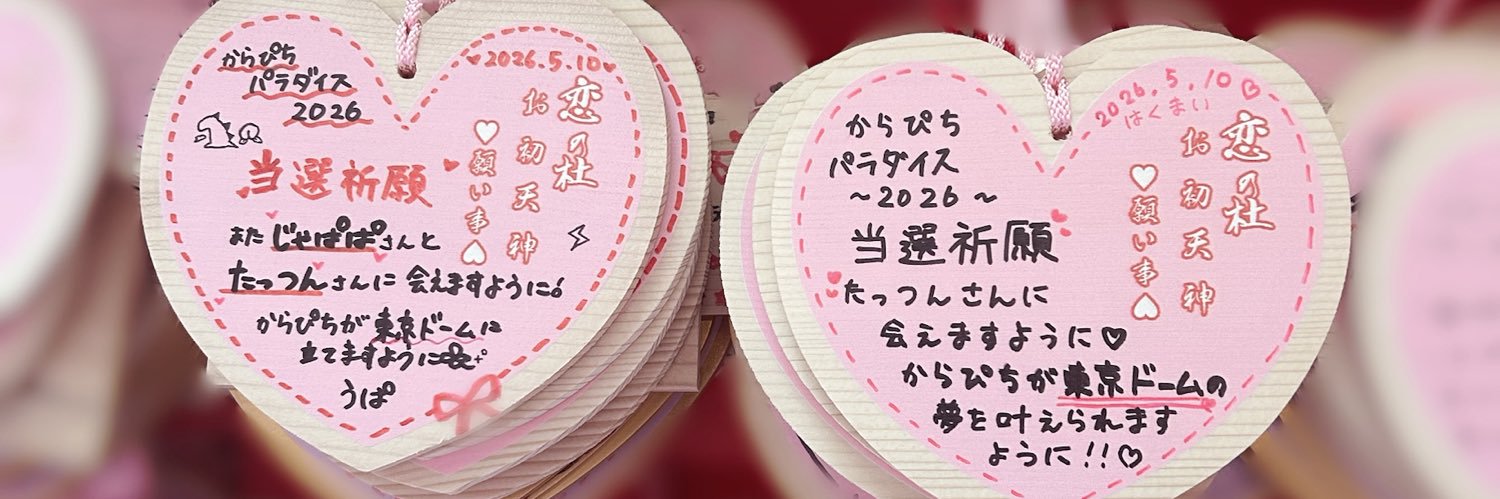 からぴち
パラダイス
2026
当選祈願
また じゃぱぱさんと
たっつんさんに 会えますように
からぴちが東京ドームに
立てますように
うぱ
2026.5.10
恋の杜
お初天神
願い事
からぴち
パラダイス
~2026~
当選祈願
たっつんさんに
会えますように♡
からぴちが東京ドームの
夢を叶えられます
ように!!♡
2026.5.10♡
はくまい
恋の杜
お初天神
願い事